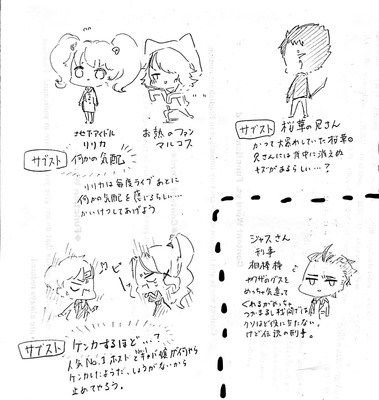 地下アイドル
リリカ
お熱のファン
マルコス
サブスト
何かの気配
リリカは毎度ライブあとに
何かの気配を感じるらしい…
かいけつしてあげよう
サブスト
桜華の兄さん
かつて大暴れしていた桜華の
兄さんには背中に消えぬ
キズがあるらしい…?
ビ
サブスト
ケンカするほど…?
人気No.1ホストとキャバ嬢が何やら
ケンカしたようだ、しょうがないから
止めてやろう。
ジャスさん
刑事
相棒枠
ヤクザのグズを
めっちゃ気遣って
くれるがめっちゃ
つかまるし
クソほど役に立たない。
けど伝説の刑事。